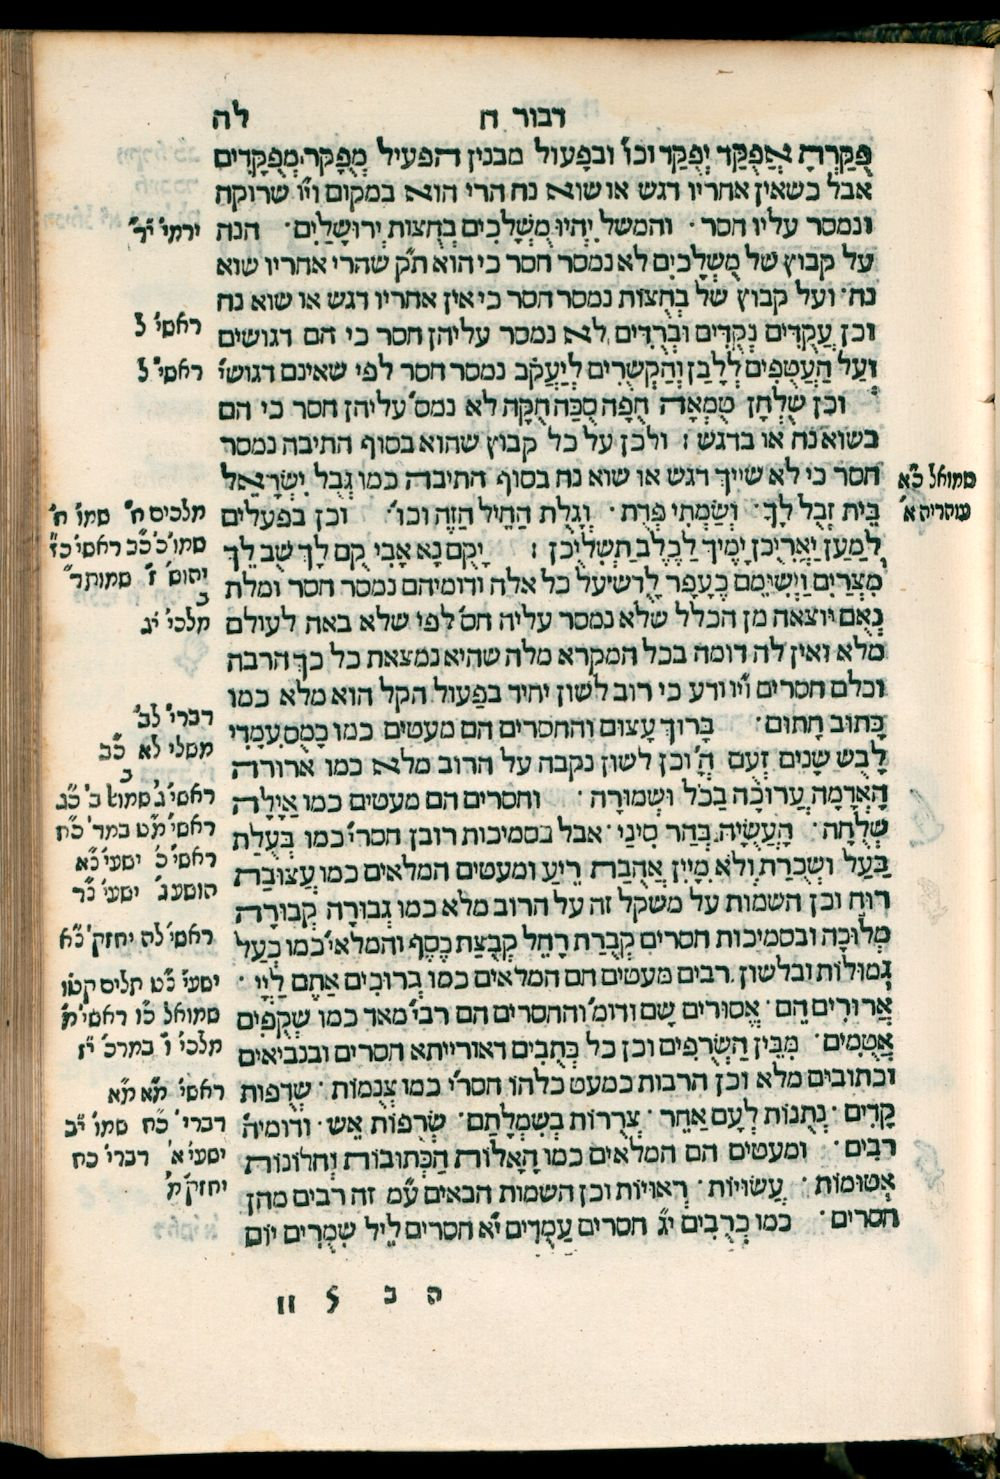 דבור ח לה
פֻּקַּרְתָּ אֲפֻקַּד יְפֻקַּד וכו׳ ובפָעול מבנין הפעיל מֻפְקָּר מֻפְקָּדִים
אבל כשאין אחריו דגש או שוא נח הרי הוא במקום וי״ו שרוקה
ונמסר עליו חסר · והמשל יִהְיוּ מֻשְׁלָכִים בְּחֻצוֹת יְרוּשָׁלַיִם · הנה
ירמי׳ י״ד
על קבוץ של מֻשְׁלָכִים לא נמסר חסר כי הוא ת״ק שהרי אחריו שוא
נח · ועל קבוץ של בְּחֻצוֹת נמסר חסר כי אין אחריו דגש או שוא נח
וכן עֲקֻדִּים נְקֻדִּים וּבְרֻדִּים לא נמסר עליהן חסר כי הם דגושים
ראשי׳ ל
וְעַל הָעֲטֻפִים לְלָבָן וְהַקְּשֻׁרִים לְיַעֲקֹב נמסר חסר לפי שאינם דגושי׳
ראשי׳ ל
וכן שֻׁלְחָן טֻמְאָה חֻפָּה סֻכָּה חֻקָּה לא נמס׳ עליהן חסר כי הם
בשוא נח או בדגש : ולכן על כל קבוץ שהוא בסוף התיבה נמסר
חסר כי לא שייך דגש או שוא נח בסוף התיבה כמו גְּבֻל יִשְׂרָאֵל
שמואל כ״א
בֵּית זְבֻל לָךְ · וְשַׂמְתִּי פְדֻת · וְגָלֻת הַחֵיל הַזֶּה וכו׳ · וכן בפעלים
עוסריה א׳
מלכים ח׳ שמו׳ ח׳
לְמַעַן יַאֲרִיכֻן יָמֶיךָ לַכֶּלֶב תַּשְׁלִיכֻן : יָקֻם נָא אָבִי קֻם לָךְ שֻׁב לֵךְ
שמו׳ כ׳ כ״ב ראשי׳ כ״ז
מִצְרַיִם וַיְשִׂימֵם כֶּעָפָר לָדֻשׁ על כל אלה ודומיהם נמסר חסר ומלת
יהוש׳ ז׳ שמות ד״
ב
נְאֻם יוצאה מן הכלל שלא נמסר עליה חס׳ לפי שלא באה לעולם
מלכי׳ יג
מלא ואין לה דומה בכל המקרא מלה שהיא נמצאת כל כך הרבה
וכלם חסרים וי״ו ודע כי רוב לשון יחיד בפַעול הקל הוא מלא כמו
כָּתוּב חָתוּם · בָּרוּךְ עָצוּם והחסרים הם מעטים כמו כָּמֻס עִמָּדִי
דברי׳ לב׳
לָבֻשׁ שָׁנִים זְעֻם הָ׳ וכן לשון נקבה על הרוב מלא כמו ארורה
משלי לא כ״ב
ב
הָאֲדָמָה עֲרוּכָה בַכֹּל וּשְׁמוּרָה · וחסרים הם מעטים כמו אַיָּלָה
ראשי׳ ג׳ שמוא׳ ב׳ כ״ג
שְׁלֻחָה · הָעֲשֻׂיָה בְּהַר סִינַי · אבל בסמיכות רובן חסרי׳ כמו בְּעֻלַת
ראשי׳ מ״ט במד׳ כ״ח
בַּעַל וּשְׁכֻרַת וְלֹא מִיָּיִן אֲהֻבַת רֵיעַ ומעטים המלאים כמו עֲצוּבַת
ראשי׳ כ׳ ישעי׳ נ״א
רוּחַ וכן השמות על משקל זה על הרוב מלא כמו גְּבוּרָה קְבוּרָה
הושע ג׳ ישעי׳ נ״ד
מְלוּכָה ובסמיכות חסרים קְבֻרַת רָחֵל קְבֻצַת כֶּסֶף והמלאי׳ כמו כְּעַל
ראשי׳ לה יחזק׳ כ״א
גְּמוּלוֹת ובלשון רבים מעטים הם המלאים כמו בְּרוּכִים אַתֶּם לַיְיָ ·
ישעי׳ כ״ט תלים קטו
אֲרוּרִים הֵם · אֲסוּרִים שָׁם ודומ׳ והחסרים הם רבי׳ מאד כמו שְׁקֻפִים
שמואל כ״ו ראשי׳ מ׳
אֲטֻמִים · מִבֵּין הַשְּׂרֻפִים וכן כל כְּתֻבִים דאורייתא חסרים ובנביאים
מלכי׳ ו׳ במרב׳ י״ז
וכתובים מלא וכן הרבות כמעט כלהו חסרי׳ כמו צְנֻמוֹת · שְׁדֻפוֹת
ראשי׳ מ״א מ״א
קָדִים · נְתֻנוֹת לְעָם אַחֵר · צְרֻרוֹת בְּשִׂמְלֹתָם · שְׂרֻפוֹת אֵשׁ · ודומיה׳
דברי׳ כ״ח שמו׳ י״ב
רבים · ומעטים הם המלאים כמו הָאָלוֹת הַכְּתוּבוֹת וְחַלּוֹנוֹת
ישעי׳ א׳ דברי׳ כח
אֲטוּמוֹת · עֲשׂוּיוֹת · רְאוּיוֹת וכן השמות הבאים ע״מ זה רבים מהן
יחזק׳ מ׳
חסרים · כמו כְּרֻבִים י״ג חסרים עַמֻּדִים י״א חסרים לֵיל שִׁמֻּרִים יוֹם
ה ב ל וו